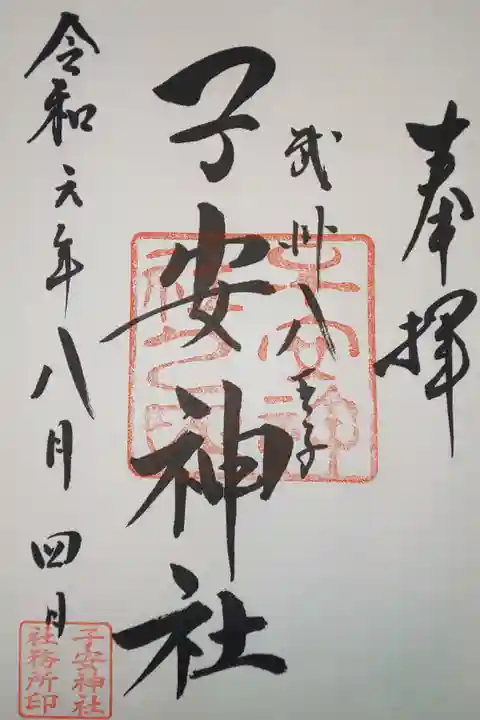 奉拝
武州八王子
子安神社
令和元年八月四日
子安神社之印
子安神社
社務所印